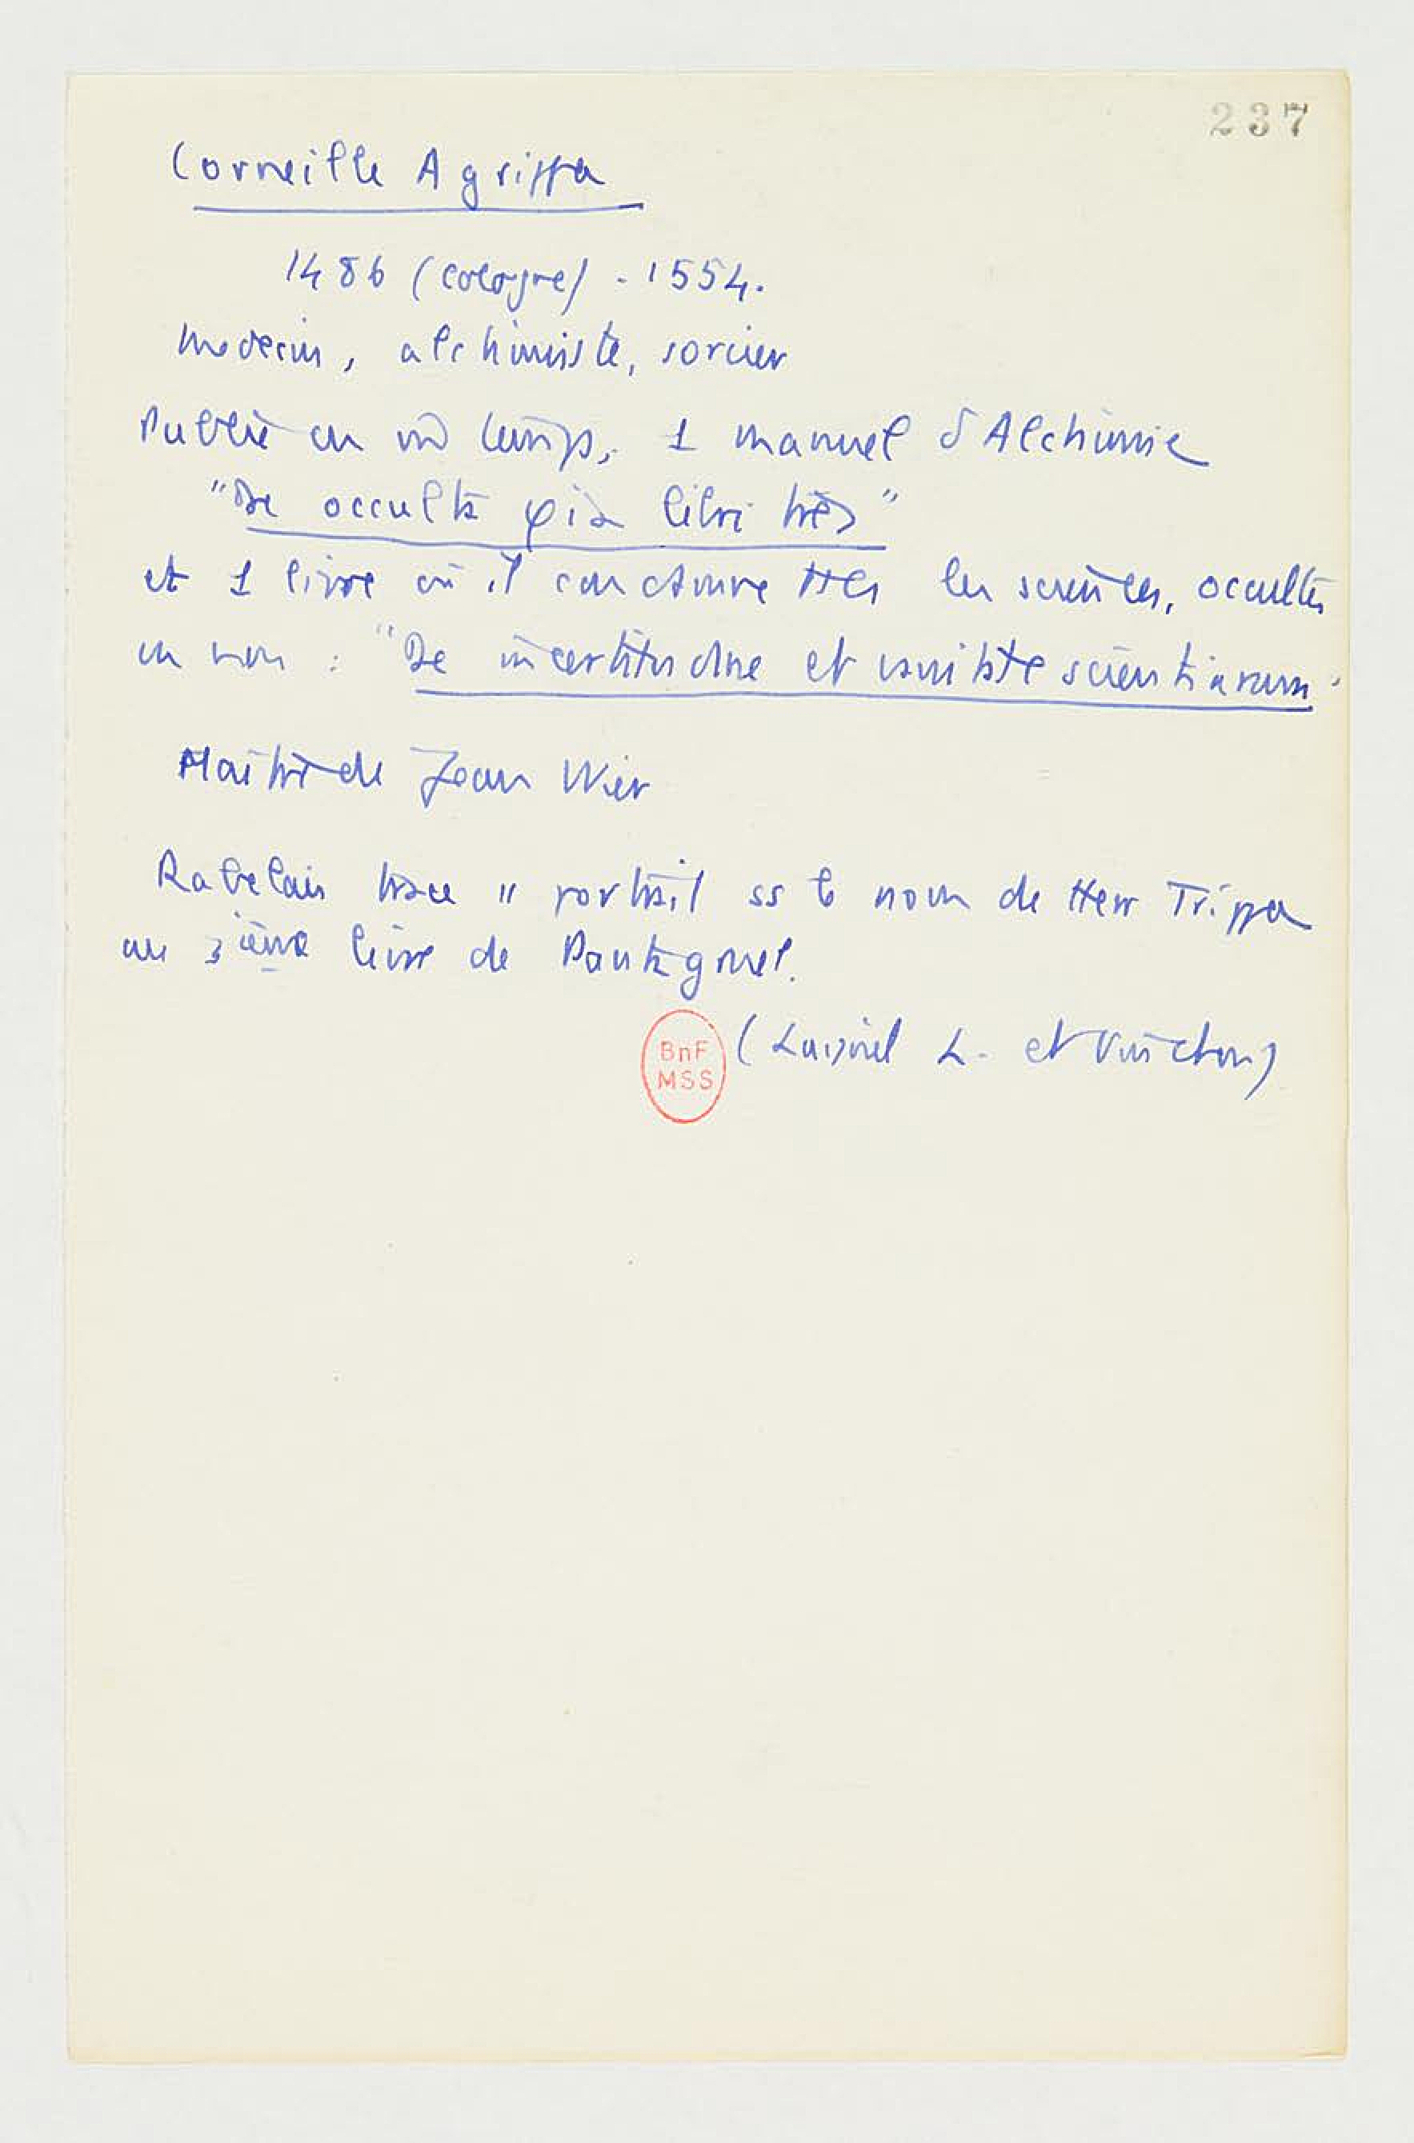 237
Corneille Agrippa
1486 (Cologne) - 1554.
Médecin, alchimiste, sorcier
Publie en m̂ temps, 1 manuel d'Alchimie
"De occulta φia libri tres"
et 1 livre où il condamne ttes les sciences, occultes
ou non : "De incertitudine et vanitate scientiarum"
Maître de Jean Wier
Rabelais trace " portrait ss le nom de Herr Trippa
au 3ième livre de Pantagruel.
BnF
MSS
( L. et Vinchon)